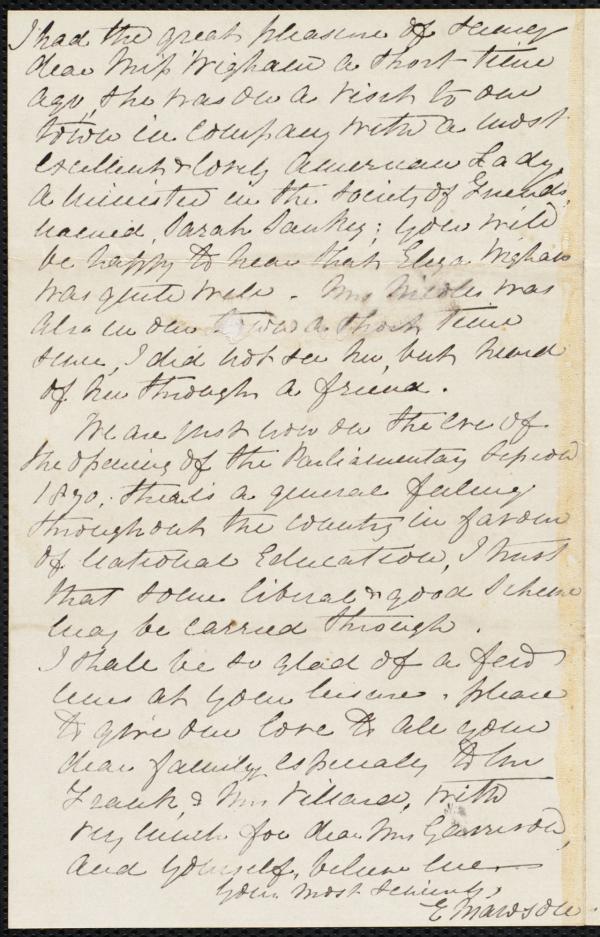 I had the great pleasure of seeing
dear Miss Wigham a short time
ago, she was on a visit to our
town in company with a most
excellent & lovely American Lady,
a minister in the Society of Friends,
named, Sarah Sankey; you will
be happy to hear that Eliza Wigham
was quite well. Mrs Nichols was
also in our town a short time
since, I did not see her, but heard
of her through a friend.
We are just now on the eve of
the opening of the Parliamentary Session
1870, there is a general feeling
throughout the country in favour
of National Education, I trust
that some liberal & good Scheme
may be carried through.
I shall be so glad of a few
lines at your leisure, please
to give our love to all your
dear family, especially to
Frank, & Mrs Villard, with
very much for dear Mrs Garrison,
and yourself, believe me
Yours most sincerely,
E Mawson.